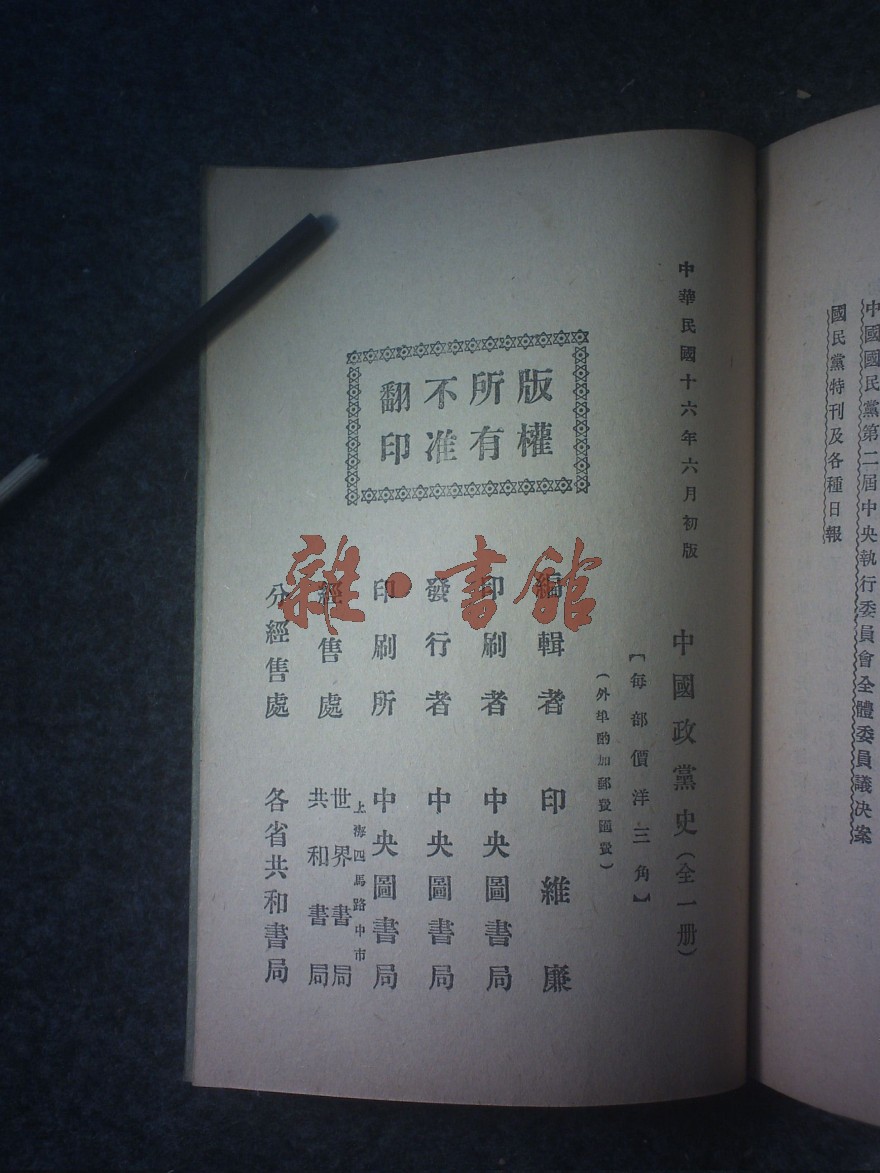 中國國民黨第二屆中央執行委員會全體委員議决案
國民黨特刊及各種日報
中華民國十六年六月初版
中國政黨史(全一册)
【每部價洋三角】
(外埠酌加郵費匯費)
版權所有不准翻印
編輯者 印維廉
印刷者 中央圖書局
發行者 中央圖書局
印刷所 中央圖書局
經售處 上海四馬路中市 世界書局 共和書局
分經售處 各省共和書局
雜·書館